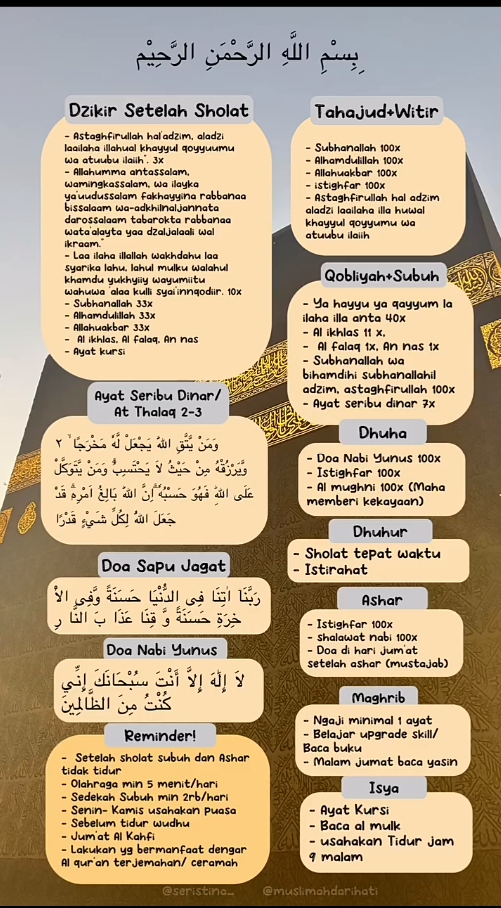 بِسْمِ اللَّهِ الرَّحْمَنِ الرَّحِيْمِ
Dzikir Setelah Sholat
- Astaghfirullah hal'adzim, aladzi
laailaha illahual khayyul qoyyuumu
wa atuubu ilaiih". 3x
- Allahumma antassalam,
wamingkassalam, wa ilayka
ya'uudussalam fakhayyina rabbanaa
bissalaam wa-adkhilnaljannata
darossalaam tabarokta rabbanaa
wata'alayta yaa dzaljalaali wal
ikraam."
- Laa ilaha illallah wakhdahu laa
syarika lahu, lahul mulku walahul
khamdu yukhyiiy wayumiitu
wahuwa 'alaa kulli syai'innqodiir. 10x
- Subhanallah 33x
- Alhamdulillah 33x
- Allahuakbar 33x
- Al ikhlas, Al falaq, An nas
- Ayat kursi
Ayat Seribu Dinar/
At Thalaq 2-3
وَمَنْ يَّتَّقِ اللّٰهَ يَجْعَلْ لَّهٗ مَخْرَجًا ۙ ٢
وَّيَرْزُقْهُ مِنْ حَيْثُ لَا يَحْتَسِبُۗ وَمَنْ يَّتَوَكَّلْ
عَلَى اللّٰهِ فَهُوَ حَسْبُهٗۗ اِنَّ اللّٰهَ بَالِغُ اَمْرِهٖۗ قَدْ
جَعَلَ اللّٰهُ لِكُلِّ شَيْءٍ قَدْرًا
Doa Sapu Jagat
رَبَّنَا اٰتِنَا فِى الدُّنْيَا حَسَنَةً وَّفِى الْاٰ
خِرَةِ حَسَنَةً وَّ قِنَا عَذَا بَ النَّا رِ
Doa Nabi Yunus
لَا إِلَهَ إِلَّا أَنْتَ سُبْحَانَكَ إِنِّي
كُنْتُ مِنَ الظَّالِمِينَ
Reminder!
- Setelah sholat subuh dan Ashar
tidak tidur
- Olahraga min 5 menit/hari
- Sedekah Subuh min 2rb/hari
- Senin- Kamis usahakan puasa
- Sebelum tidur wudhu
- Jum'at Al Kahfi
- Lakukan yg bermanfaat dengar
Al qur'an terjemahan/ ceramah
Tahajud+Witir
- Subhanallah 100x
- Alhamdulillah 100x
- Allahuakbar 100x
- istighfar 100x
- Astaghfirullah hal adzim
aladzi laailaha illa huwal
khayyul qoyyumu wa
atuubu ilaiih
Qobliyah+Subuh
- Ya hayyu ya qayyum la
ilaha illa anta 40x
- Al ikhlas 11 x,
- Al falaq 1x, An nas 1x
- Subhanallah wa
bihamdihi subhanallahil
adzim, astaghfirullah 100x
- Ayat seribu dinar 7x
Dhuha
- Doa Nabi Yunus 100x
- Istighfar 100x
- Al mughni 100x (Maha
memberi kekayaan)
Dhuhur
- Sholat tepat waktu
- Istirahat
Ashar
- Istighfar 100x
- shalawat nabi 100x
- Doa di hari jum'at
setelah ashar (mustajab)
Maghrib
- Ngaji minimal 1 ayat
- Belajar upgrade skill/
Baca buku
- Malam jumat baca yasin
Isya
- Ayat Kursi
- Baca al mulk
- usahakan Tidur jam
9 malam
@seristina_ @muslimahdarihati